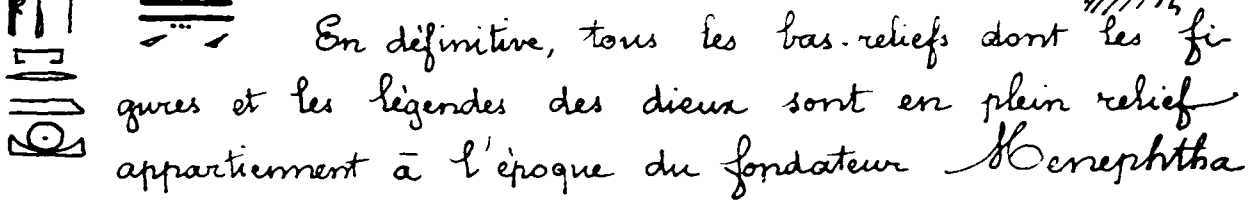 En définitive, tous les bas-reliefs dont les fi-
gures et les légendes des dieux sont en plein relief
appartiennent à l'époque du fondateur Menephtha